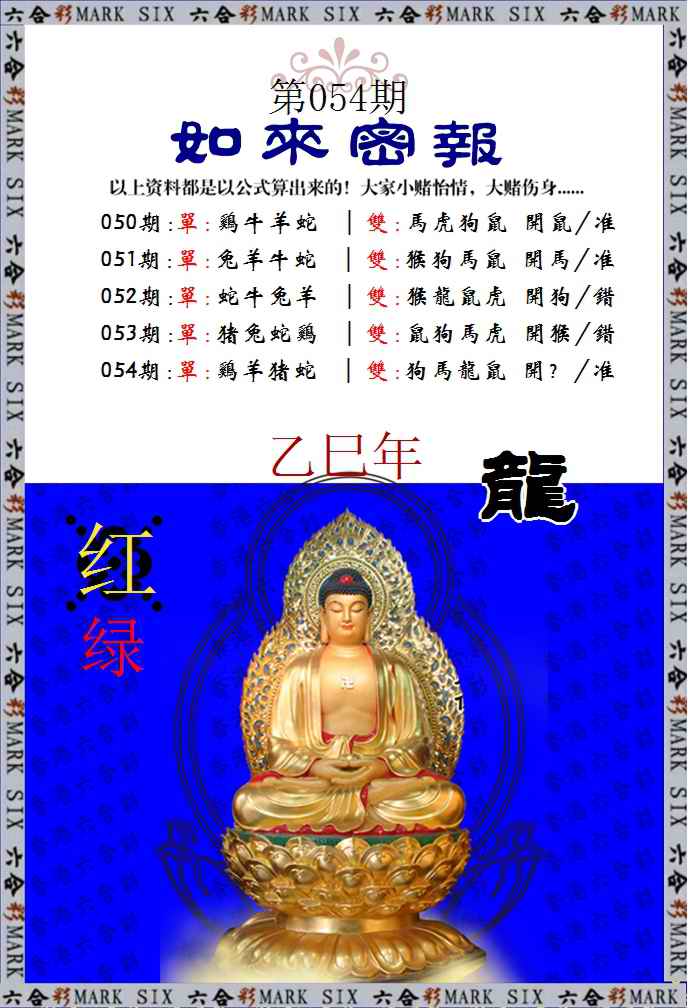 六合彩MARK SIX 六合彩MARK SIX 六合彩MARK SIX 六合彩MARK SIX
第054期
如來密報
以上资料都是以公式算出来的！大家小赌怡情，大赌伤身......
050期:單:鷄牛羊蛇 |雙:馬虎狗鼠 開鼠/准
051期:單:兔羊牛蛇 |雙:猴狗馬鼠 開馬/准
052期:單:蛇牛兔羊 |雙:猴龍鼠虎 開狗/錯
053期:單:猪兔蛇鷄 |雙:鼠狗馬虎 開猴/錯
054期:單:鷄羊猪蛇 |雙:狗馬龍鼠 開? /准
乙巳年
龍
红
绿
六合彩MARK SIX 六合彩MARK SIX 六合彩MARK SIX 六合彩MARK SIX